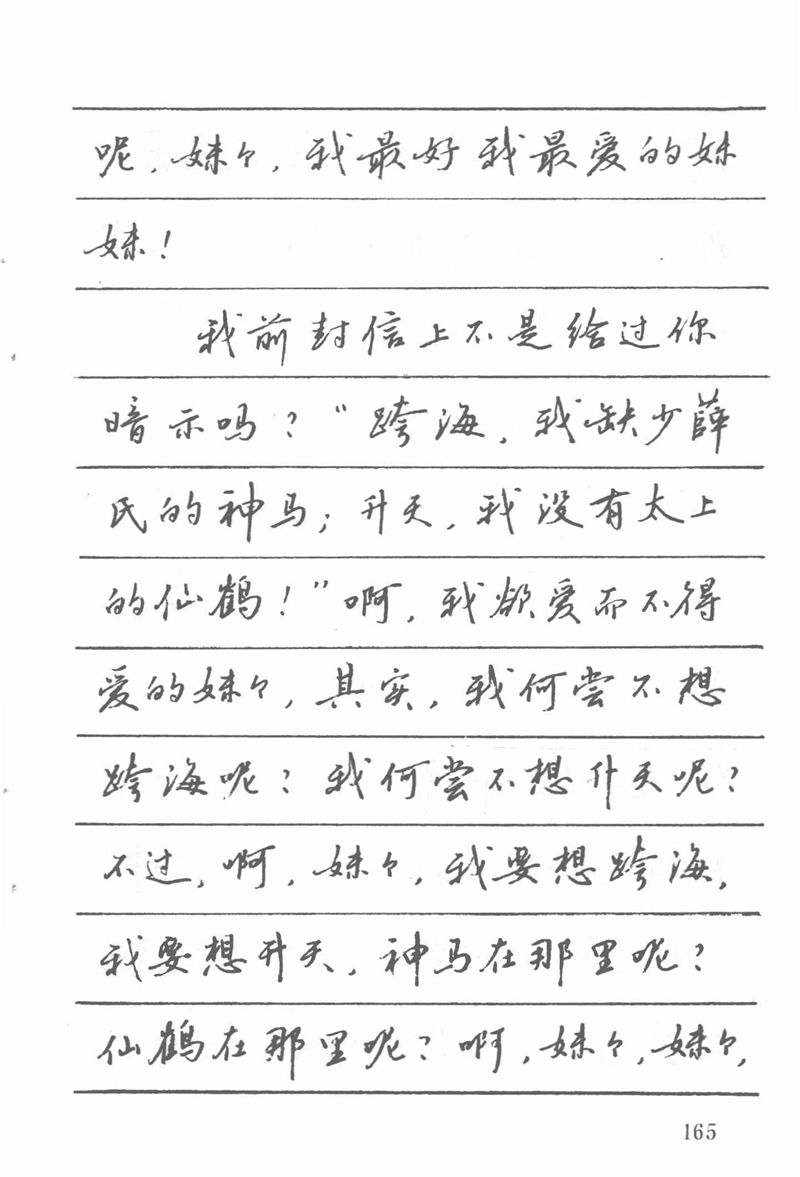 呢，妹々，我最好我最爱的妹
妹！
我前封信上不是给过你
暗示吗？“跨海，我缺少薛
氏的神马；升天，我没有太上
的仙鹤！”啊，我欲爱而不得
爱的妹々，其实，我何尝不想
跨海呢？我何尝不想升天呢？
不过，啊，妹々，我要想跨海，
我要想升天，神马在那里呢？
仙鹤在那里呢？啊，妹々，妹々，
165